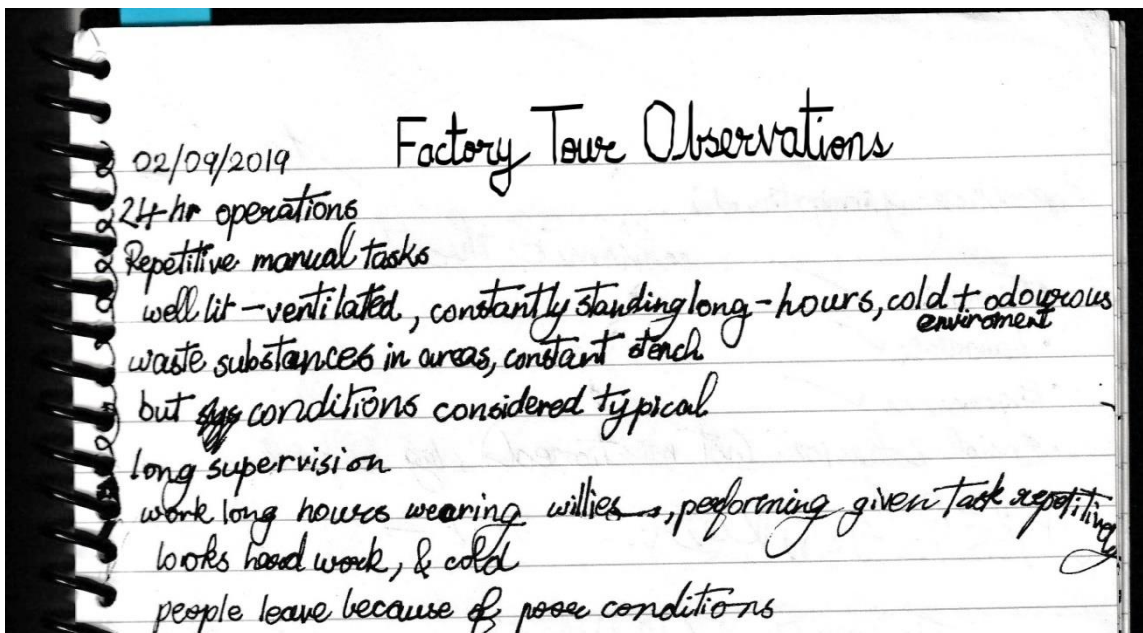 Factory Tour Observations
02/09/2019
24-hr operations
Repetitive manual tasks
well lit - ventilated, constantly standing long - hours, cold + odourous
enviroment
waste substances in areas, constant stench
but conditions considered typical
long supervision
work long hours wearing willies, performing given task repetitively
looks hard work, & cold
people leave because of poor conditions